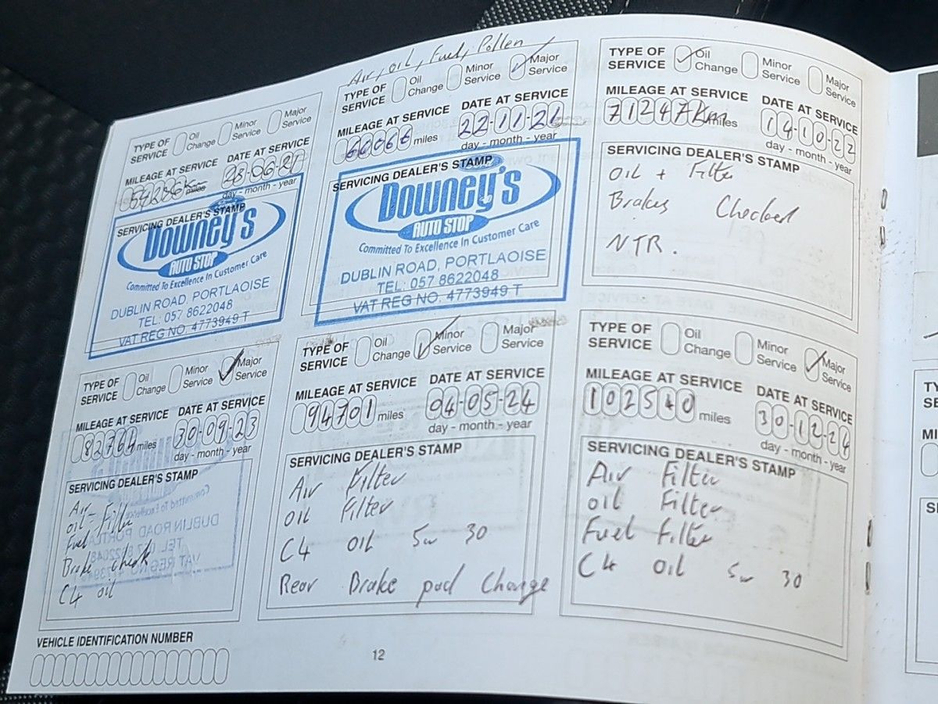 TYPE OF SERVICE Oil Change Minor Service Major Service
MILEAGE AT SERVICE DATE AT SERVICE
miles 08-06-21
day - month - year
SERVICING DEALER'S STAMP
Downey's
AUTO STOP
Committed To Excellence In Customer Care
DUBLIN ROAD, PORTLAOISE
TEL: 057 8622048
VAT REG NO. 4773949 T
Air, oil, Fuel, Pollen
TYPE OF SERVICE Oil Change Minor Service Major Service
MILEAGE AT SERVICE DATE AT SERVICE
66066 miles 22-11-21
day - month - year
SERVICING DEALER'S STAMP
Downey's
AUTO STOP
Committed To Excellence In Customer Care
DUBLIN ROAD, PORTLAOISE
TEL: 057 8622048
VAT REG NO. 4773949 T
TYPE OF SERVICE Oil Change Minor Service Major Service
MILEAGE AT SERVICE DATE AT SERVICE
71247 miles 14-10-22
day - month - year
SERVICING DEALER'S STAMP
Oil + Filter
Brakes Checked
NTR.
TYPE OF SERVICE Oil Change Minor Service Major Service
MILEAGE AT SERVICE DATE AT SERVICE
82764 miles 30-09-23
day - month - year
SERVICING DEALER'S STAMP
Air Filter
oil Filter
Fuel Filter
Brake check
C4 oil
TYPE OF SERVICE Oil Change Minor Service Major Service
MILEAGE AT SERVICE DATE AT SERVICE
94701 miles 04-05-24
day - month - year
SERVICING DEALER'S STAMP
Air Filter
oil Filter
C4 oil 5w 30
Rear Brake pad Change
TYPE OF SERVICE Oil Change Minor Service Major Service
MILEAGE AT SERVICE DATE AT SERVICE
102540 miles 30-12-24
day - month - year
SERVICING DEALER'S STAMP
Air Filter
oil Filter
Fuel Filter
C4 oil 5w 30
VEHICLE IDENTIFICATION NUMBER
12